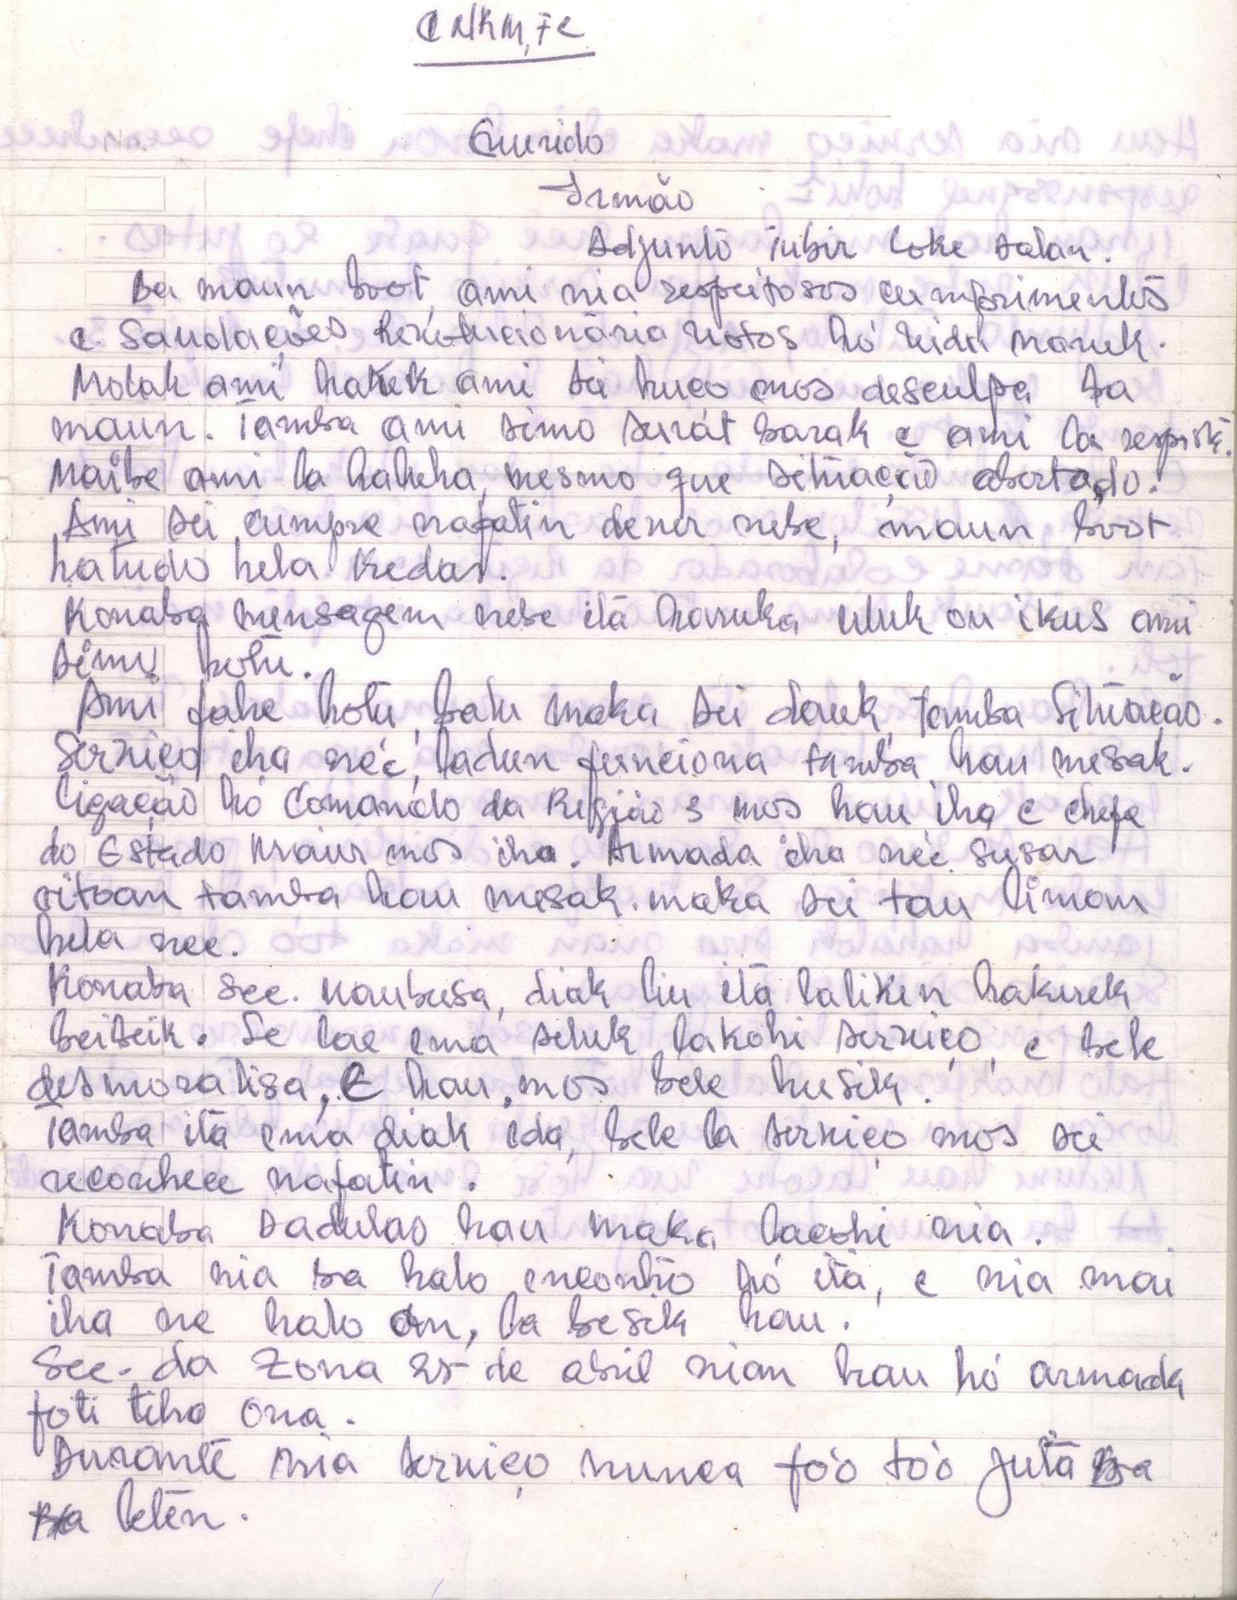 CNRM, FC
Querido
Irmão
Adjunto Tubir Loke Dalan.
Ba maun boot, ami nia respeitosos cumprimentos
e Saudações Revolucionária hotos hó
Molak ami hakerek ami sei husu mos desculpa ba
maun. Tamba ami simo surát barak e ami la respeitá.
Maibe ami la haluha, mesmo que situação abertado.
Ami sei cumpre nafatin dever nebe, maun boot
hatudo hela kedas.
Konaba mensagem nebe itá haruka uluk ou ikus ami
simu hotu.
Ami fahe hotu, balu maka sei dauk, tamba Situação.
Serviço iha neé, ladun funciona tamba hau mesak.
Ligação hó Comando da Região 3 mos hau iha e chefe
do Estado Maior mos iha. Armada iha neé susar
oitoan tamba hau mesak. maka sei tau liman
hela nee.
Konaba Sec. Maubusa, diak liu itá laliken hakerek
beibeik. Se lae ema seluk lakohi serviço, e bele
desmoralisa, E hau, mos bele husik.
Tamba itá ema diak ida, bele la serviço mos sei
reconhece nafatin.
Konaba Dadulas hau maka lacohi nia.
Tamba nia ba halo encontro hó itá, e nia mai
iha ne halo an, la besik hau.
Sec. da Zona 25 de abril nian hau hó armada
foti tiha ona.
Durante nia serviço nunca fó'o tó'o jutá ba
ba letén.